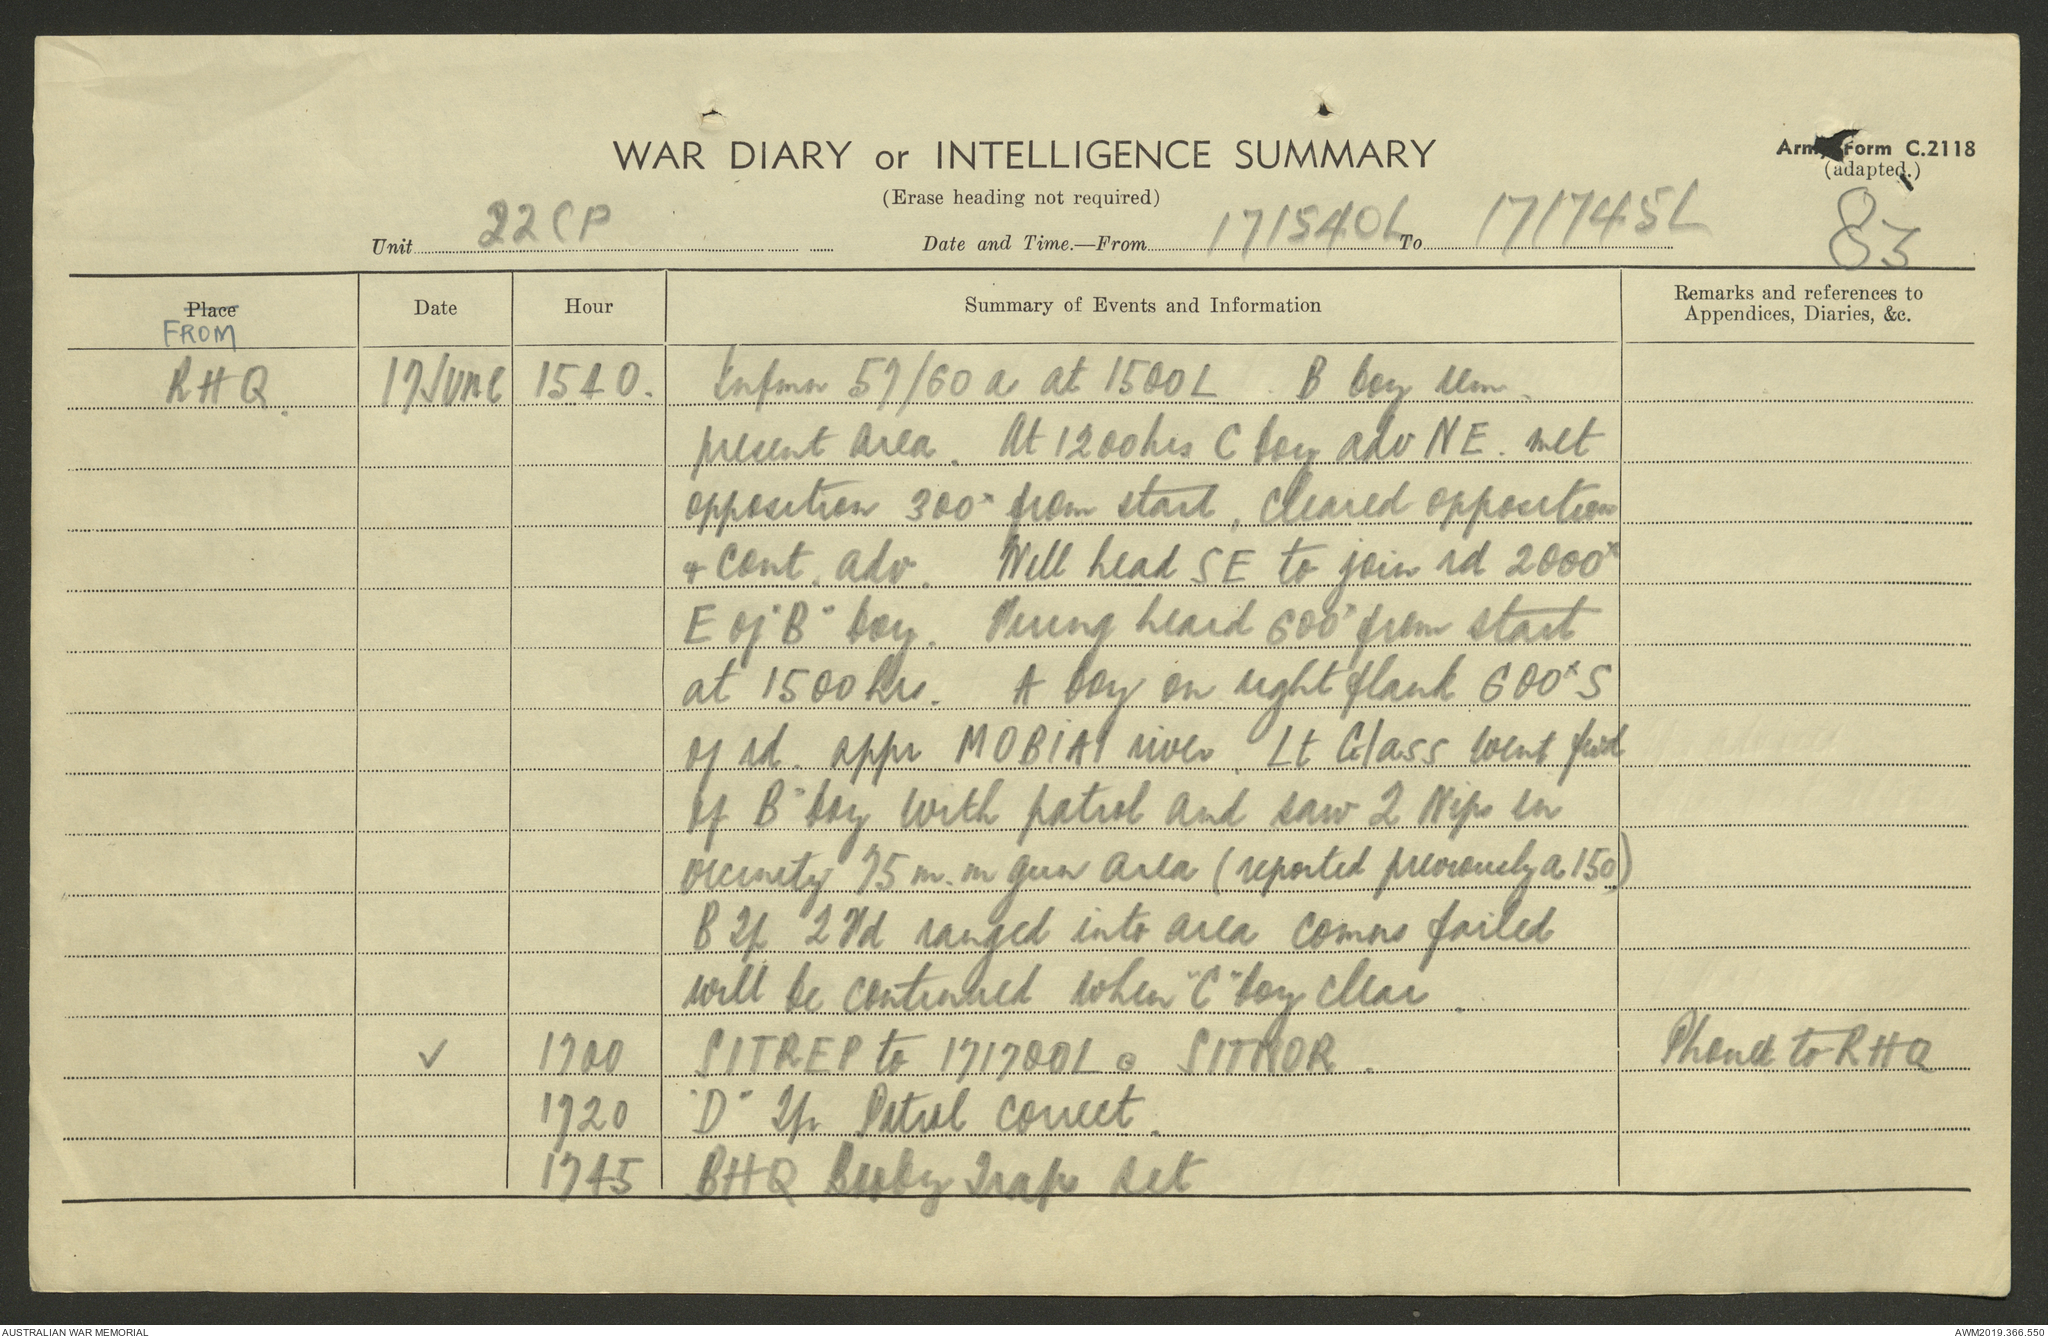 WAR DIARY or INTELLIGENCE SUMMARY
Army Form C.2118
(adapted.)
(Erase heading not required)
83
Unit 22 CP Date and Time.—From 171540L To 171745L
Place Date Hour Summary of Events and Information Remarks and references to Appendices, Diaries, &c.
FROM
RHQ. 17 JUNE 1540. Infmn 57/60 a at 1500L. B Coy rem.
present area. At 1200hrs C Coy adv NE. met
opposition 300x from start, cleared opposition
& cont. adv. Will head SE to join rd 2000x
E of "B" Coy. Firing heard 600x from start
at 1500hrs. A Coy on right flank 600x S
of rd. appr MOBIAI river. Lt Glass went fwd
of B" Coy with patrol and saw 2 Nips in
vicinity 75 m.m gun area (reported previously a 150)
B Tp 2 Fd ranged into area comns failed
will be continued when "C" Coy clear.
✓ 1700 SITREP to 171700L a SITNOR. Phoned to RHQ
1720 "D" Tp Patrol correct.
1745 BHQ Booby Traps set
AUSTRALIAN WAR MEMORIAL
AWM2019.366.550